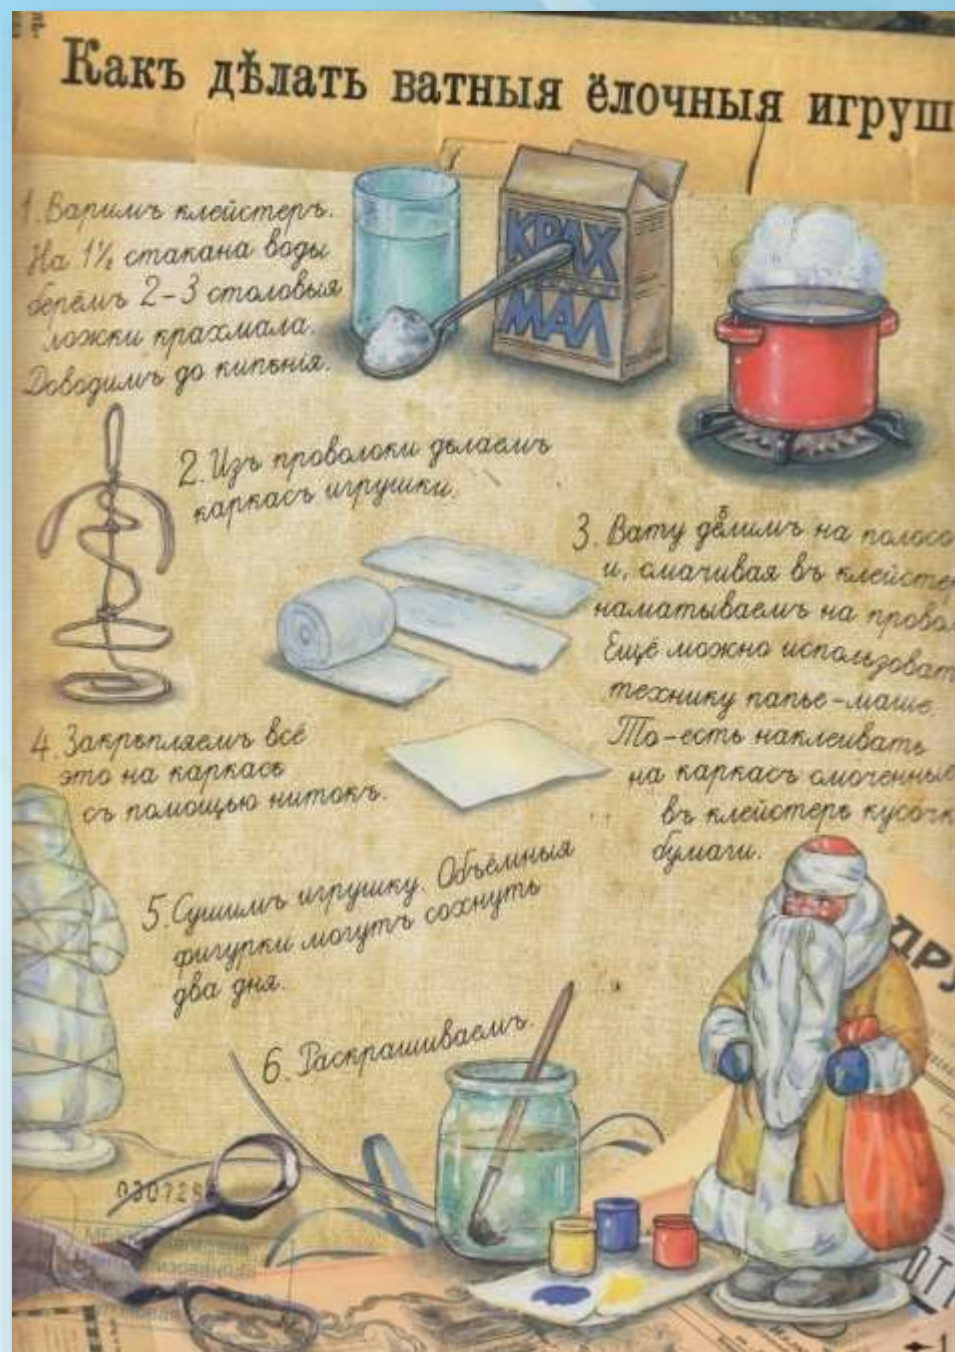 Какъ дѣлать ватныя ёлочныя игруш
1. Варимъ клейстеръ.
На 1½ стакана воды
берёмъ 2-3 столовыя
ложки крахмала.
Доводимъ до кипѣнія.
КРАХ
МАЛ
2. Изъ проволоки дѣлаемъ
каркасъ игрушки.
3. Вату дѣлимъ на полосо
и, смачивая въ клейстер
наматываемъ на провол
Ещё можно использоват
технику папье-маше.
То-есть наклеивать
на каркасъ смоченные
въ клейстерѣ кусочк
бумаги.
4. Закрѣпляемъ всё
это на каркасѣ
съ помощью нитокъ.
5. Сушимъ игрушку. Объёмныя
фигурки могутъ сохнуть
два дня.
6. Раскрашиваемъ.
ДРУ
030728
ОТ